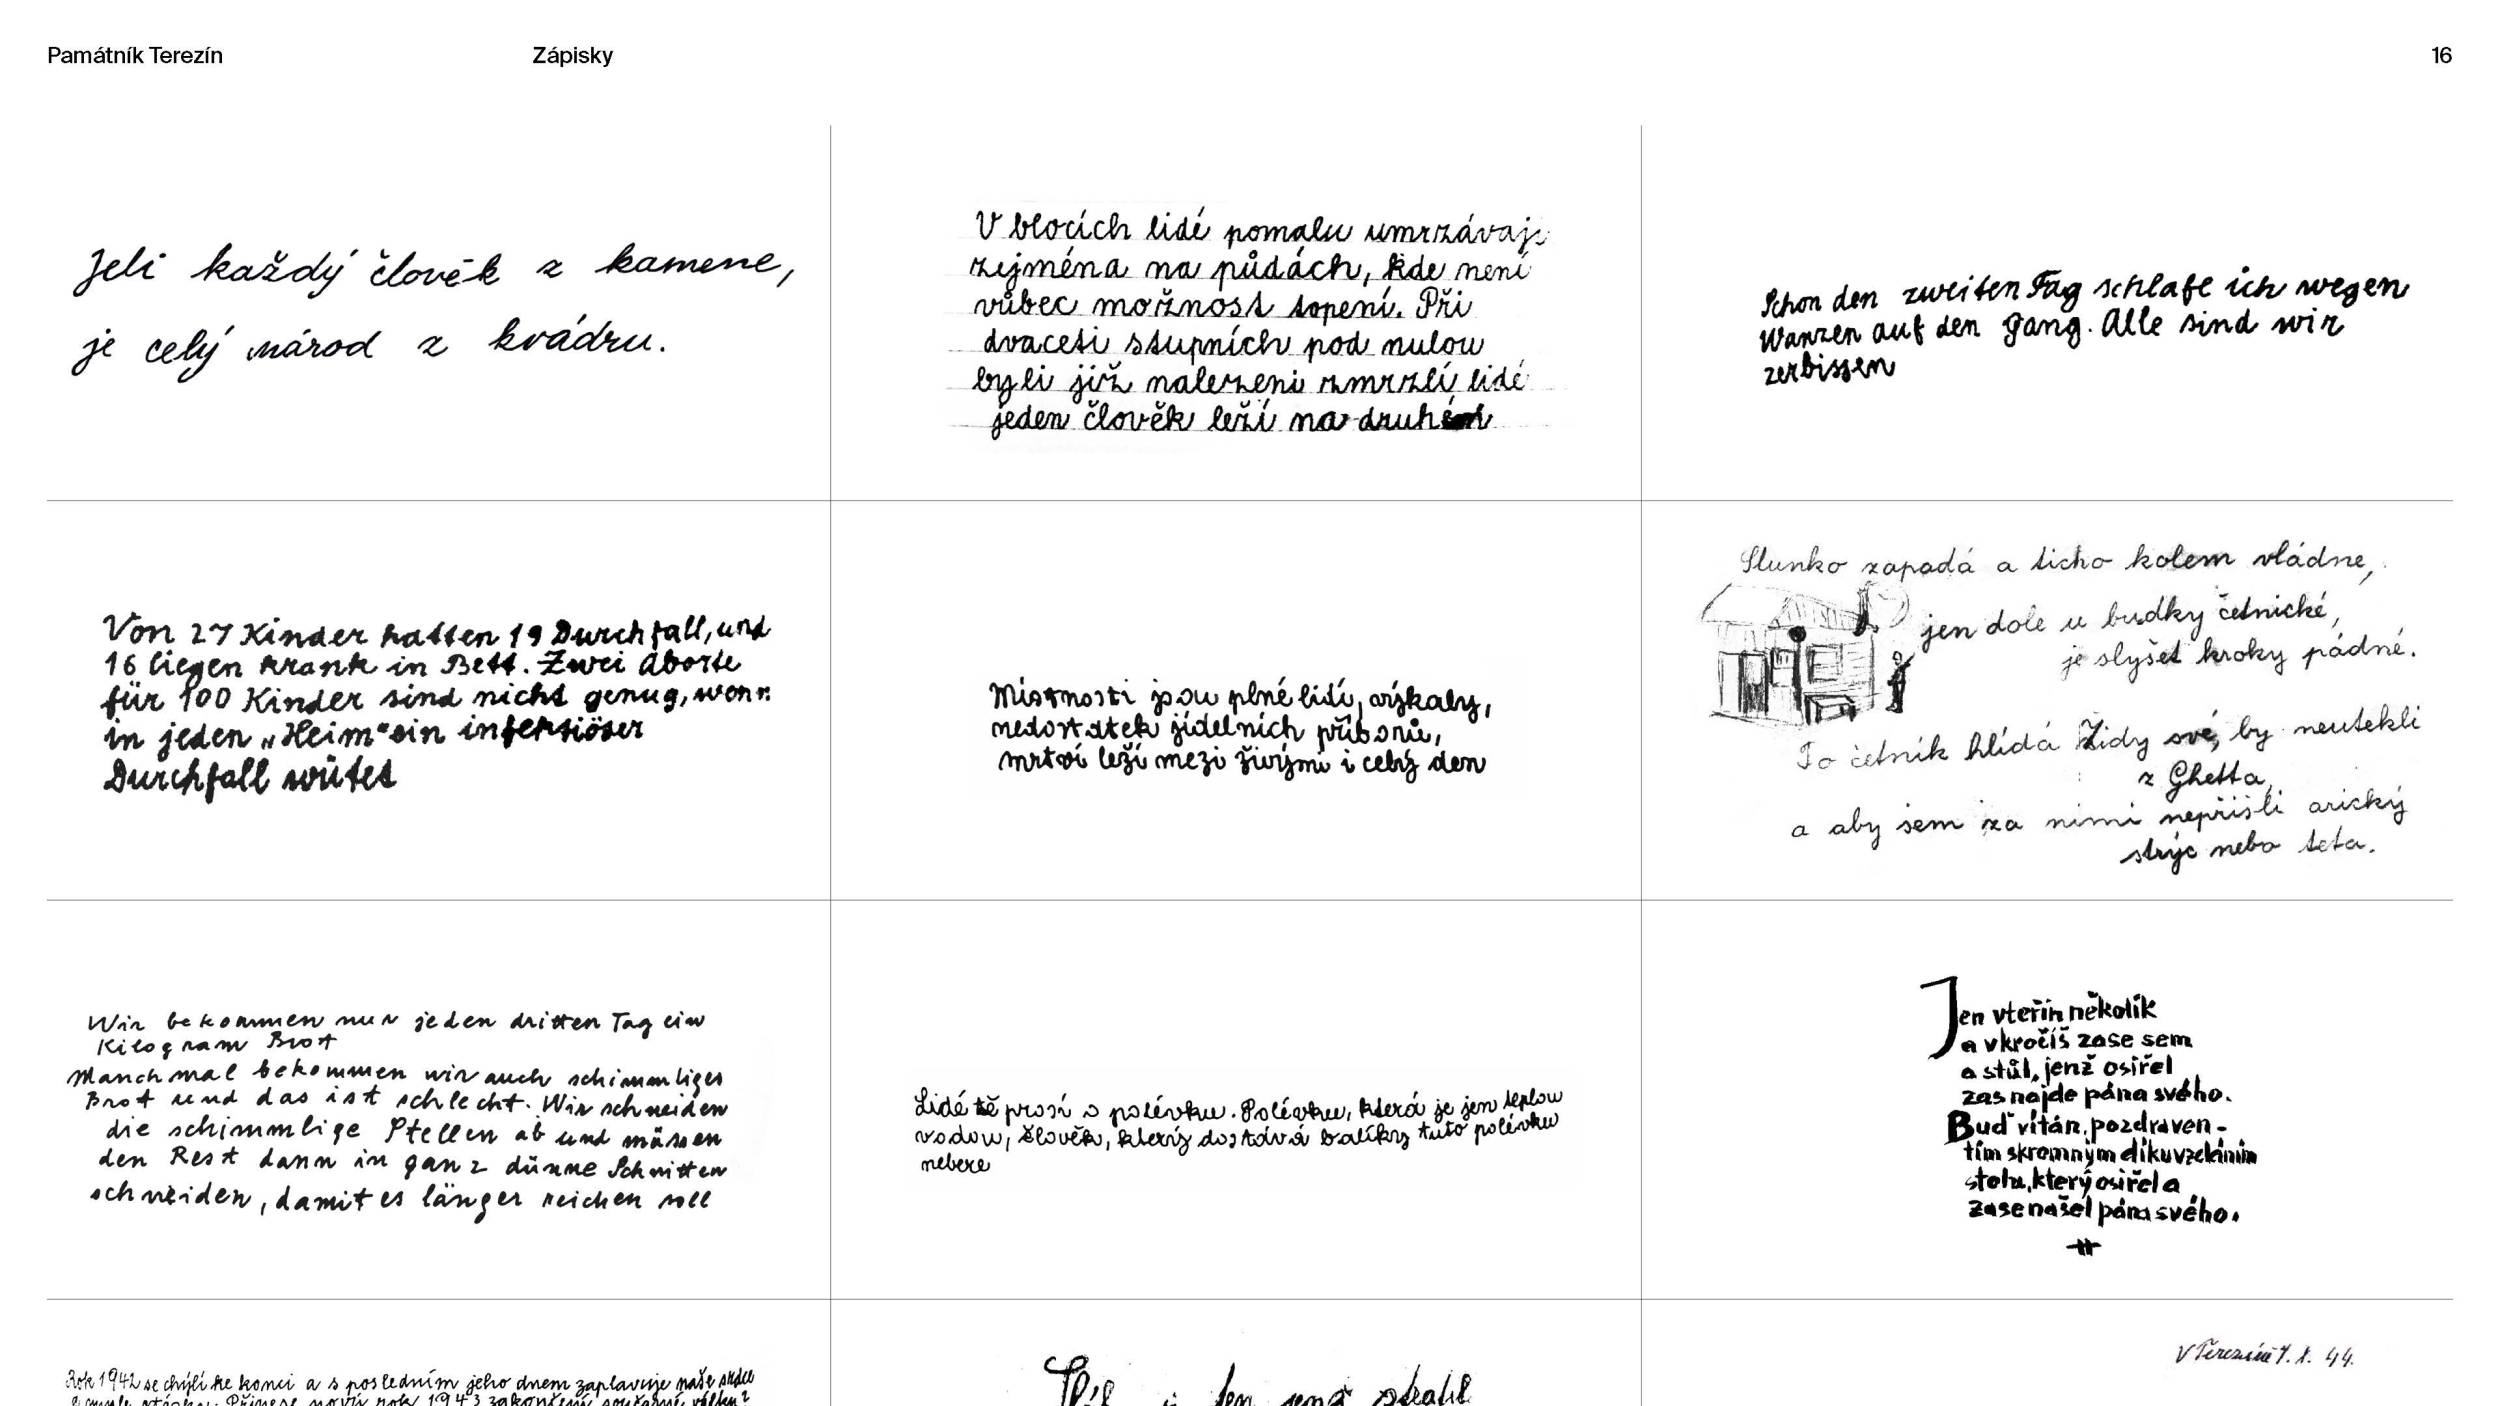 Památník Terezín
Zápisky
16
Jeli každý člověk z kamene,
je celý národ z kvádru.
V blocích lidé pomalu umrzávají
zejména na půdách, kde není
vůbec možnost topení. Při
dvaceti stupních pod nulou
byli již nalezeni zmrzlí lidé
jeden člověk leží na druhém
Schon den zweiten Tag schlafe ich wegen
Wanzen auf den Gang. Alle sind wir
zerbissen
Von 27 Kinder hatten 19 Durchfall, und
16 liegen krank in Bett. Zwei Aborte
für 100 Kinder sind nicht genug, wenn
in jeden „Heim“ ein infektiöser
Durchfall wütet
Místnosti jsou plné lidí, výkaly,
nedostatek jídelních příborů,
mrtví leží mezi živými i celý den
Slunko zapadá a ticho kolem vládne,
jen dole u budky četnické,
je slyšet kroky pádné.
To četník hlídá Židy své, by neutekli
z Ghetta,
a aby sem za nimi nepřišli arický
strýc nebo teta.
Wir bekommen nur jeden dritten Tag ein
Kilogram Brot
Manchmal bekommen wir auch schimmliges
Brot und das ist schlecht. Wir schneiden
die schimmlige Stellen ab und müssen
den Rest dann in ganz dünne Schnitten
schneiden, damit es länger reichen soll
Lidé tě prosí o polévku. Polévku, která je jen teplou
vodou, člověk, který dostává balíky tuto polévku
nebere
Jen vteřin několik
a vkročíš zase sem
a stůl, jenž osiřel
zas najde pána svého.
Buď vítán, pozdraven -
tím skromným díkuvzdáním
stolu, který osiřel a
zase našel pána svého.
Rok 1942 se chýlí ke konci a s posledním jeho dnem zaplavuje naše srdce
otázka: Přinese nový rok 1943 zakončení současné války?
ten
ztratil
V Terezíně 44.